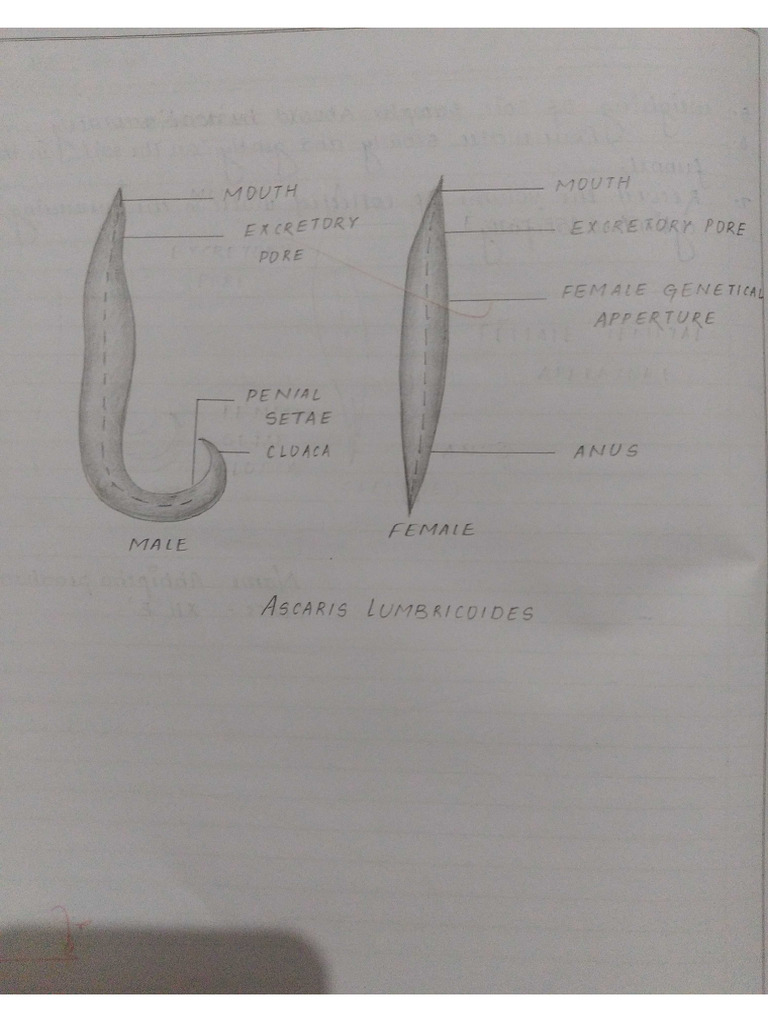 MOUTH
EXCRETORY
PORE
PENIAL
SETAE
CLOACA
MALE
MOUTH
EXCRETORY PORE
FEMALE GENETICAL
APPERTURE
ANUS
FEMALE
ASCARIS LUMBRICOIDES